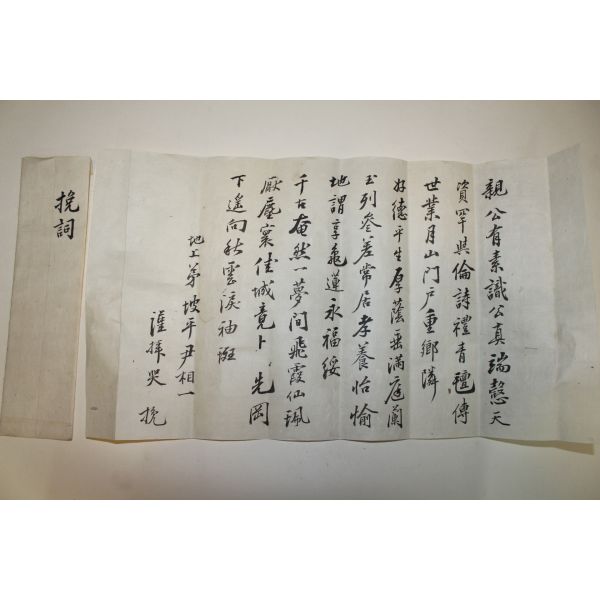 挽詞
親公有素識公真端慤天
資罕與倫詩禮青氊傳
世業月山門戶重鄉隣
好德平生厚蔭垂滿庭蘭
玉列參差常居孝養怡愉
地謂享龜蓮永福綏
千古奄然一夢間飛霞仙珮
厭塵寰佳城竟卜先岡
下遙向秋雲淚袖斑
地上弟坡平尹相一
謹拜哭挽